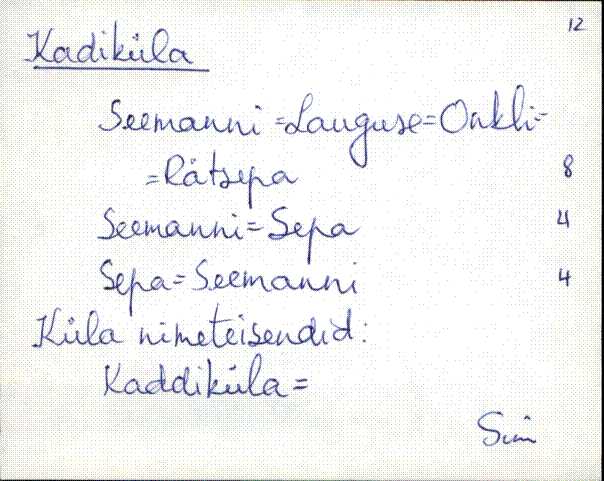 12
Kadiküla
Seemanni = Lauguse = Onkli =
= Rätsepa 8
Seemanni = Sepa 4
Sepa = Seemanni 4
Küla nimeteisendid:
Kaddiküla =